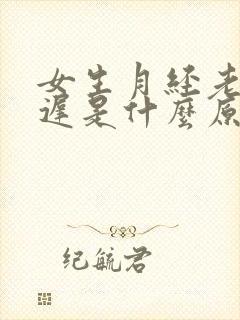 女生月经老
遲是什麼原
纪毓君